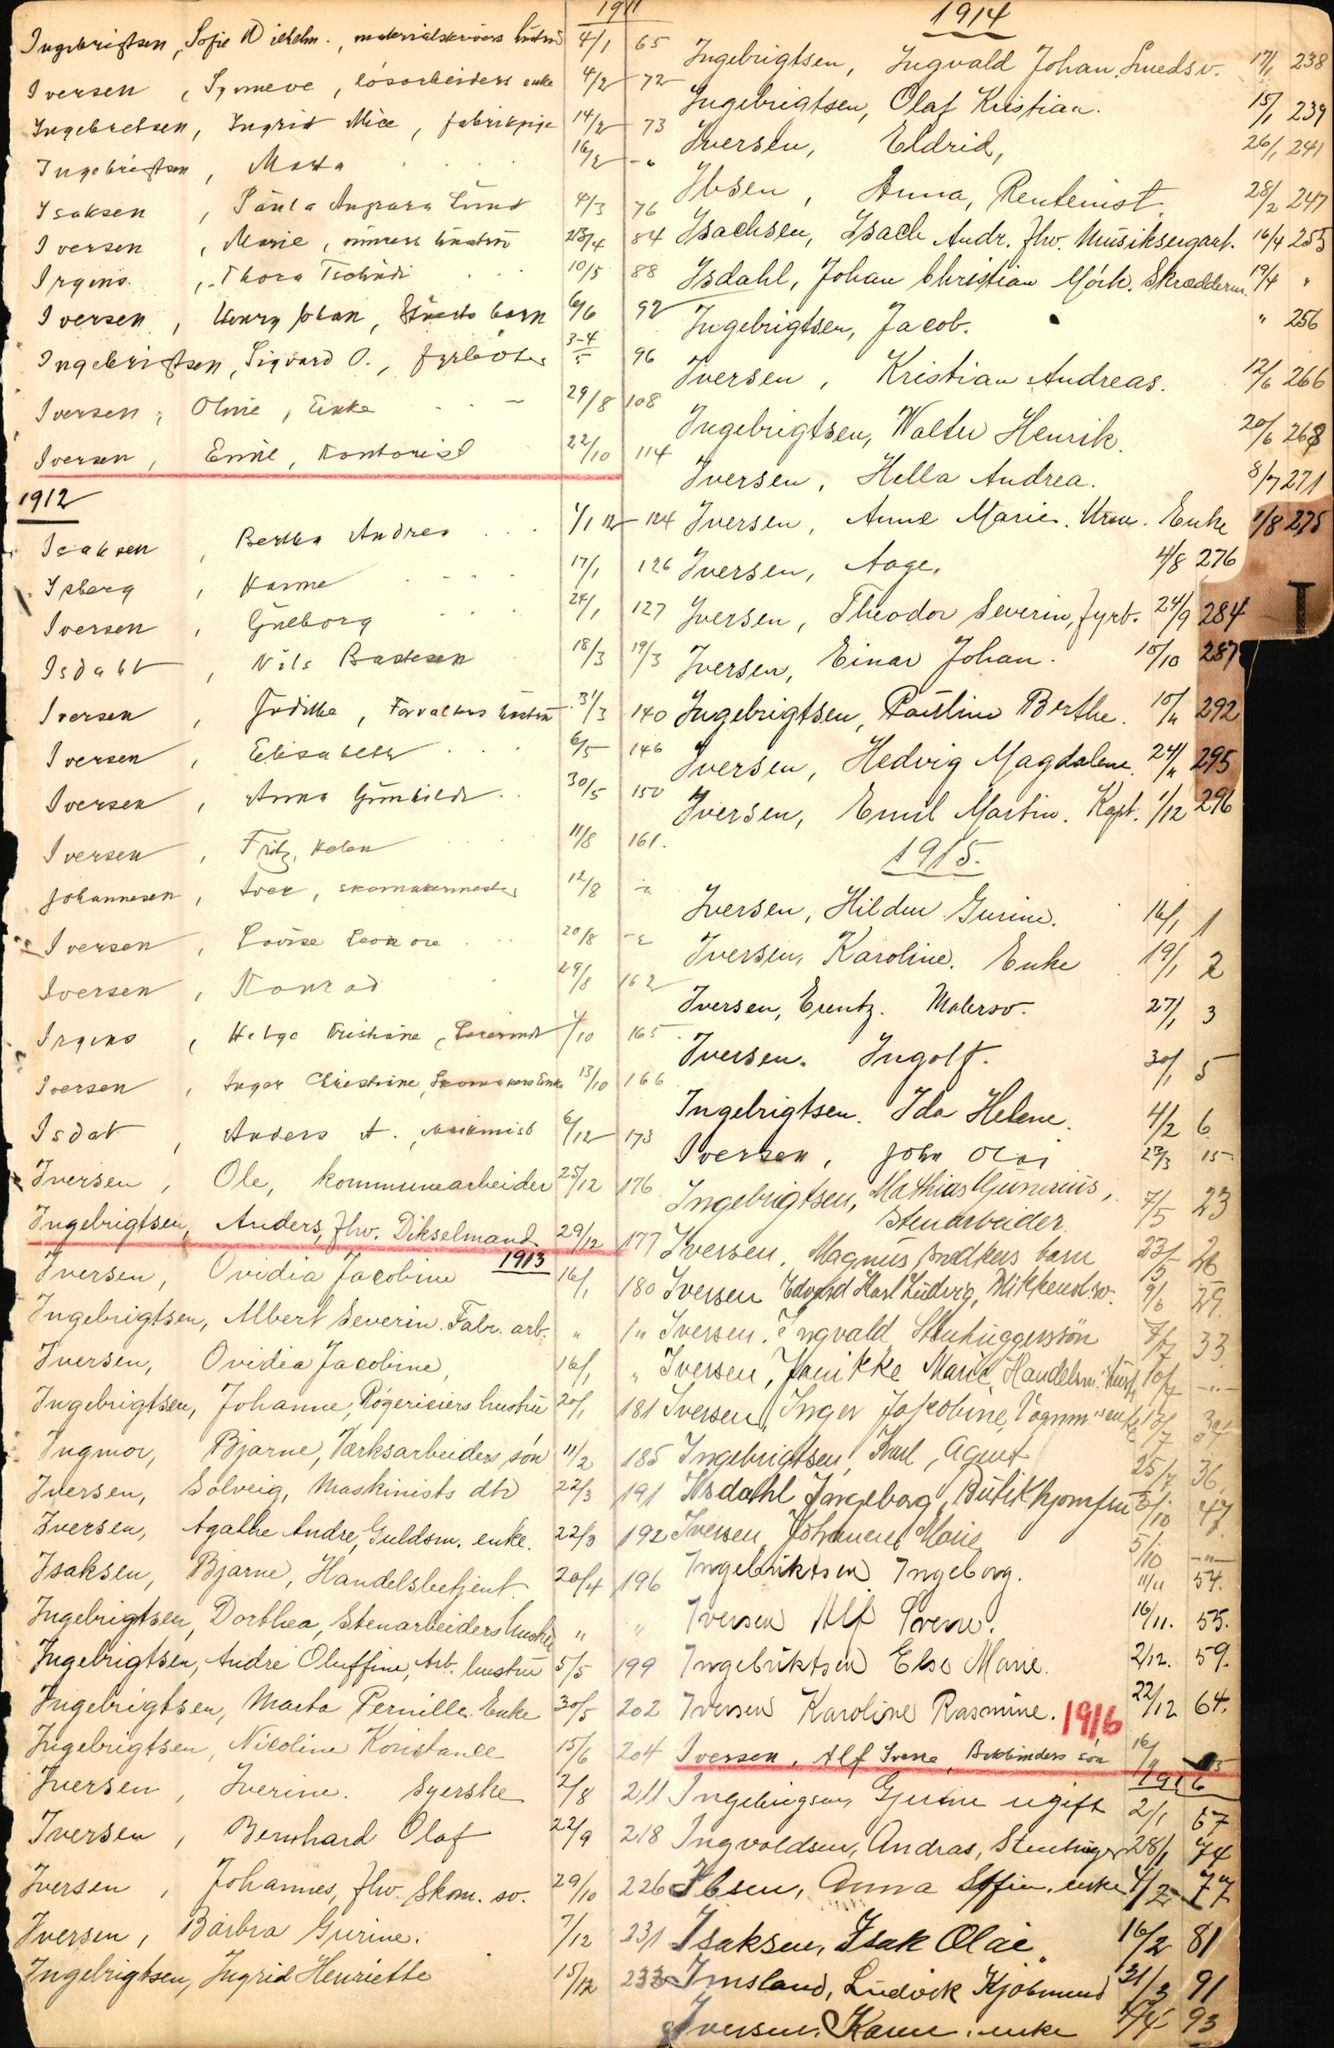 1911
Ingebrigtsen, Sofie Wilhelm., materialskrivers hustru 4/1 65
Iversen, Synneve, løsarbeiders enke 4/2 72
Ingebretsen, Ingrid Alice, fabrikpige 14/2 73
Ingebrigtsen, Marta 16/2 - "
Isaksen, Paula Lund 4/3 76
Iversen, Marie, hustru 23/4 84
Irgens, Thora 10/5 88
Iversen, Henry Johan, barn 6/6 92
Ingebrigtsen, Sigvard O., fyrbøter 3-4/5 96
Iversen, Oline, Enke 29/8 108
Iversen, Emil, Kontorist 22/10 114
1912
Isaksen, Bertha Andrea 1/1 12 124
Isberg, Hanne 17/1 126
Iversen, Gunborg 24/1 127
Isdahl, Nils 18/3 19/3
Iversen, Judithe, Forvalters hustru 31/3 140
Iversen, Elisabeth 6/5 146
Iversen, Anna Gunhilde 30/5 150
Iversen, Fritz, Helen 11/8 161.
Johannesen, Iver, skomakermester 12/8 - "
Iversen, Lovise Leonore 20/8 - "
Iversen, Konrad 29/8 162
Irgens, Helga Kristine, 1/10 165
Iversen, Inger Christine, Skomakers Enke 13/10 166
Isdal, Anders A., Maskinist 6/12 173
Iversen, Ole, kommunearbeider 25/12 176
Ingebrigtsen, Anders, fhv. Dikselmand 29/12 177
1913
Iversen, Ovidia Jacobine 16/1 180
Ingebrigtsen, Albert Severin. Fabr. arb. " 1 "
Iversen, Ovidia Jacobine, 16/1 "
Ingebrigtsen, Johanne, Røgerieiers hustru 20/1 181
Ingmor, Bjarne, Værksarbeiders søn 11/2 185
Iversen, Solveig, Maskinists dtr 22/3 191
Iversen, Agathe Andre, Guldsm. enke. 22/3 192
Isaksen, Bjarne, Handelsbetjent 20/4 196
Ingebrigtsen, Dorthea, Stenarbeiders hustru " "
Ingebrigtsen, Andre Oluffine, Arb. hustru 5/5 199
Ingebrigtsen, Marta Pernille. Enke 30/5 202
Ingebrigtsen, Nicoline Konstance 15/6 204
Iversen, Iverine. Syerske 2/8 211
Iversen, Bernhard Olaf 22/9 218
Iversen, Johannes, fhv. Skom. sv. 29/10 226
Iversen, Barbra Gurine. 7/12 231
Ingebrigtsen, Ingrid Henriette 15/12 233
1914
Ingebrigtsen, Ingvald Johan, Smedsv. 17/1 238
Ingebrigtsen, Olaf Kristian. 15/1 239
Iversen, Eldrid, 26/1 241
Ibsen, Anna, Rentenist. 28/2 247
Isachsen, Isach Andr. fhv. Musiksergant. 16/4 255
Isdahl, Johan Christian Mørk. Skrædderm. 19/4 "
Ingebrigtsen, Jacob. " 256
Iversen, Kristian Andreas. 12/6 266
Ingebrigtsen, Walter Henrik. 20/6 268
Iversen, Hella Andrea. 8/7 271
Iversen, Anne Marie. Urm. Enke 1/8 275
Iversen, Aage. 4/8 276
Iversen, Theodor Severin, fyrb. 24/9 284
Iversen, Einar Johan. 10/10 287
Ingebrigtsen, Pauline Berthe. 10/11 292
Iversen, Hedvig Magdalene. 24/11 295
Iversen, Emil Martin. Kapt. 1/12 296
I
1915.
Iversen, Hildur Gurine. 16/1 1
Iversen, Karoline. Enke 19/1 2
Iversen, Erentz. Malersv. 27/1 3
Iversen. Ingolf. 30/1 5
Ingebrigtsen. Ida Helene. 4/2 6
Iversen, John Olai 23/3 15
Ingebrigtsen, Mathias Gunerius, Stenarbeider 7/5 23
Iversen, Magnus Snedkers barn 23/5 26
Iversen Edvard Karl Ludvig, 9/6 29.
Iversen. Ingvald Stenhuggerssøn 7/7 33.
Iversen, Janikke Marie, Handelsm. hust. 10/7 - " -
Iversen, Inger Jakobine, Vognm. enke 13/7 34
Ingebrigtsen, Karl, Agent 25/7 36.
Isdahl Ingeborg, Butikkjomfru 3/10 47.
Iversen Johanne Marie 5/10 - " -
Ingebriktsen Ingeborg. 11/11 54.
Iversen Alf Sverre. 16/11. 55.
Ingebriktsen Else Marie. 2/12. 59.
Iversen Karoline Rasmine. 22/12 64.
1916
Iversen, Alf Sverre, Bokbinders søn 16/
1916
Ingebrigtsen, Gurine ugift 2/1 67
Ingvaldsen, Andras, Stenhugger 28/1 74
Ibsen, Anna Sofie, enke 4/2 77
Isaksen, Isak Olai. 16/2 81
Imsland, Ludvik Kjøbmand 31/3 91
Iversen, Karen, enke 1/4 93